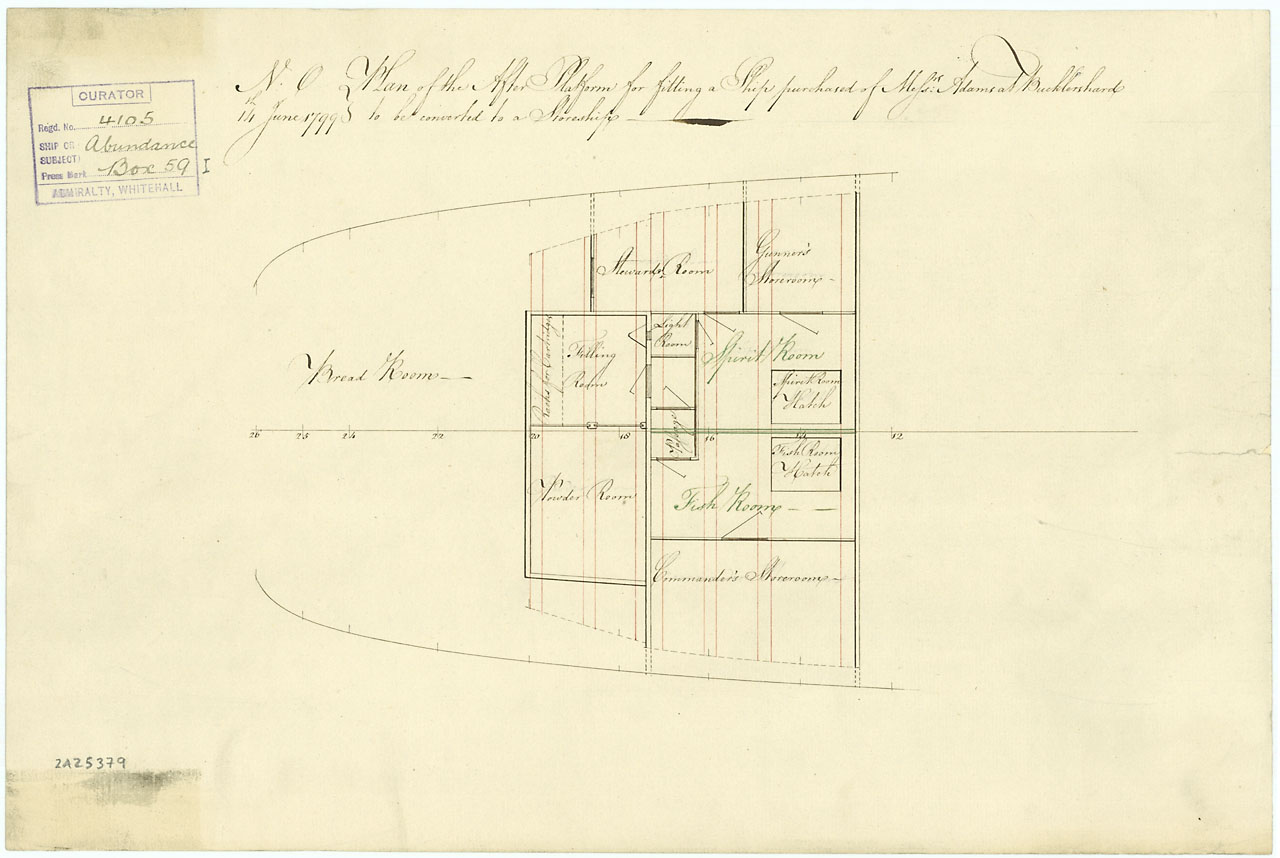 No. O Plan of the After Platform for fitting a Ship purchased of Messrs. Adams at Bucklershard
14th June 1799 } to be converted to a Storeship
CURATOR
Regd. No. 4105
SHIP OR SUBJECT } Abundance
Press Mark Box 59 I
ADMIRALTY, WHITEHALL
Steward's Room
Gunner's
Storeroom
Light
Room
Racks for Cartridges
Filling
Room
Spirit Room
Bread Room
Spirit Room
Hatch
26 25 24 22 20 18 16 14 12
Passage
Fish Room
Hatch
Powder Room
Fish Room
Commander's Storeroom
2AZ5379